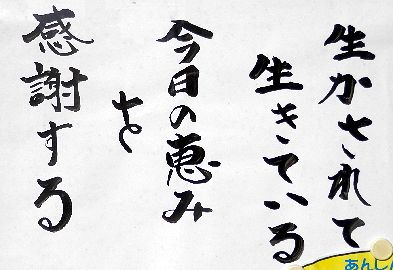 生かされて
生きている
今日の恵み
を
感謝する
あんしん